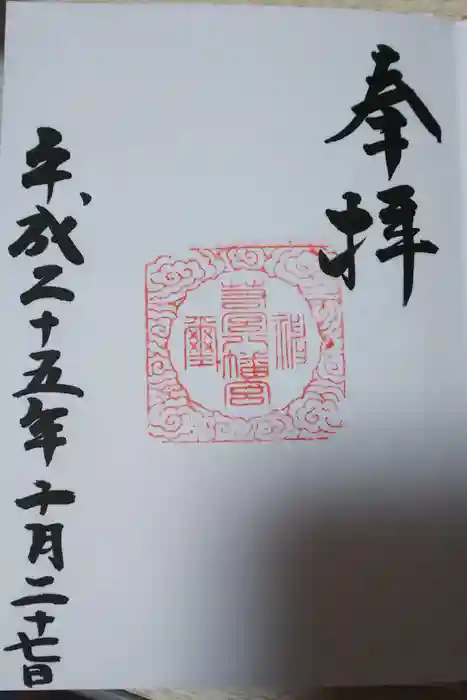 奉拝
八幡宮
平成二十五年十月二十七日